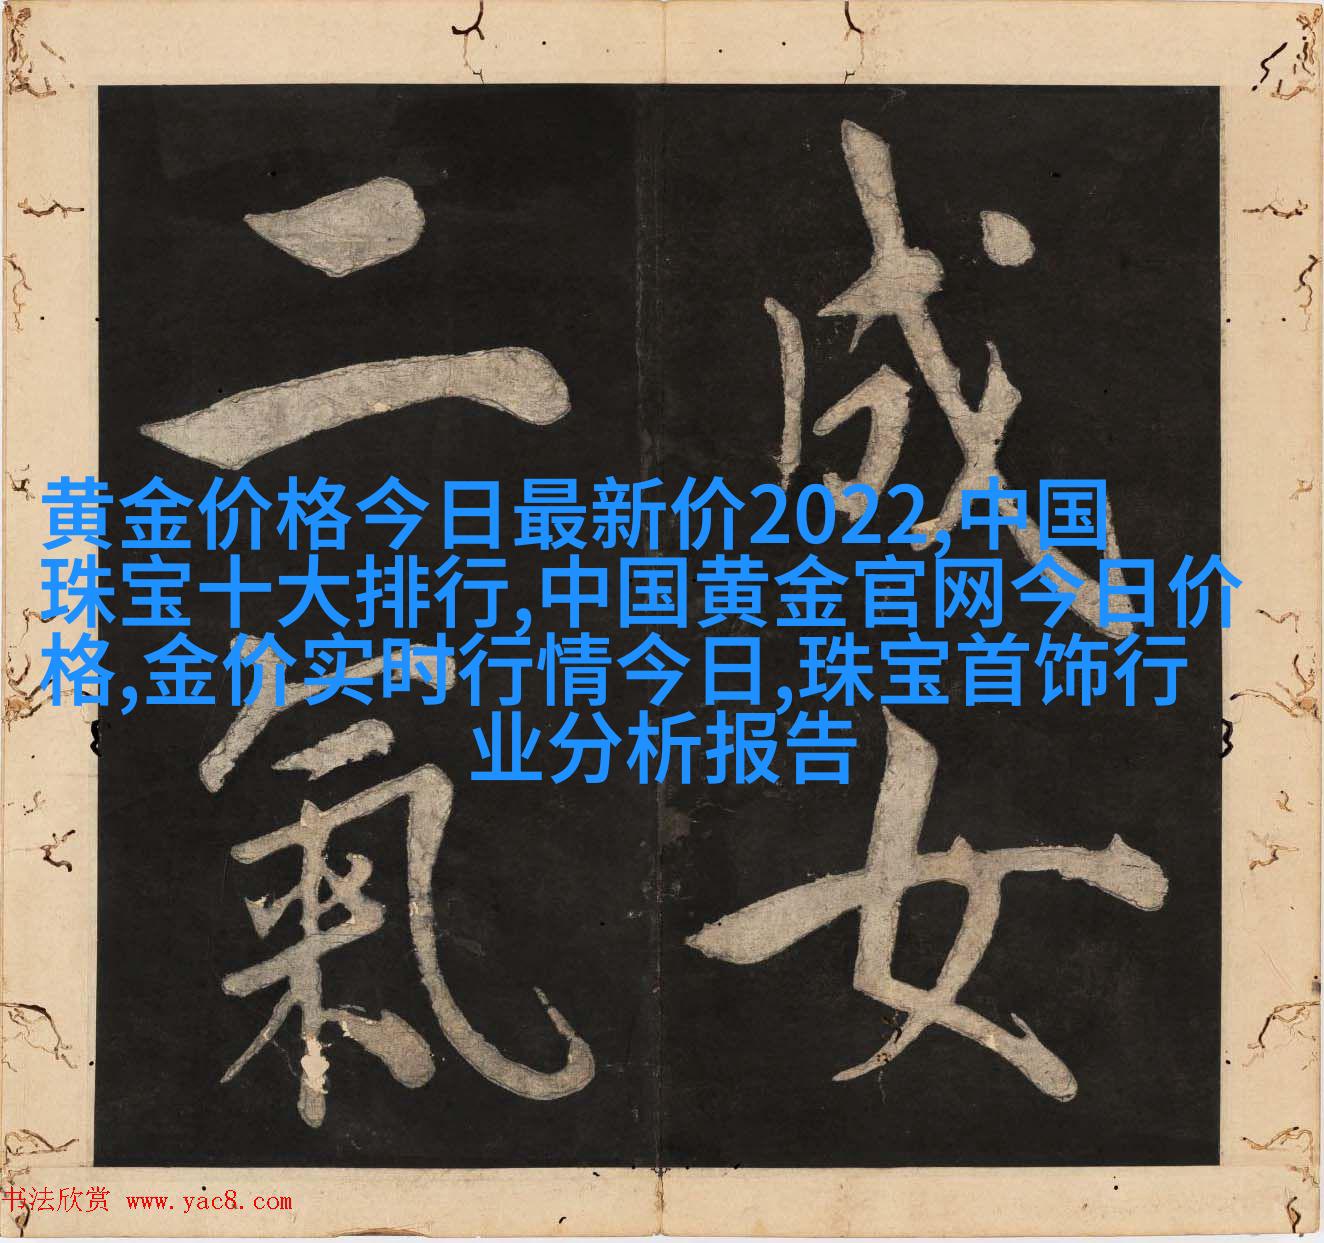 成女
二氣
黄金价格今日最新价2022,中国
珠宝十大排行,中国黄金官网今日价
格,金价实时行情今日,珠宝首饰行
业分析报告
书法欣赏 www.yac8.com